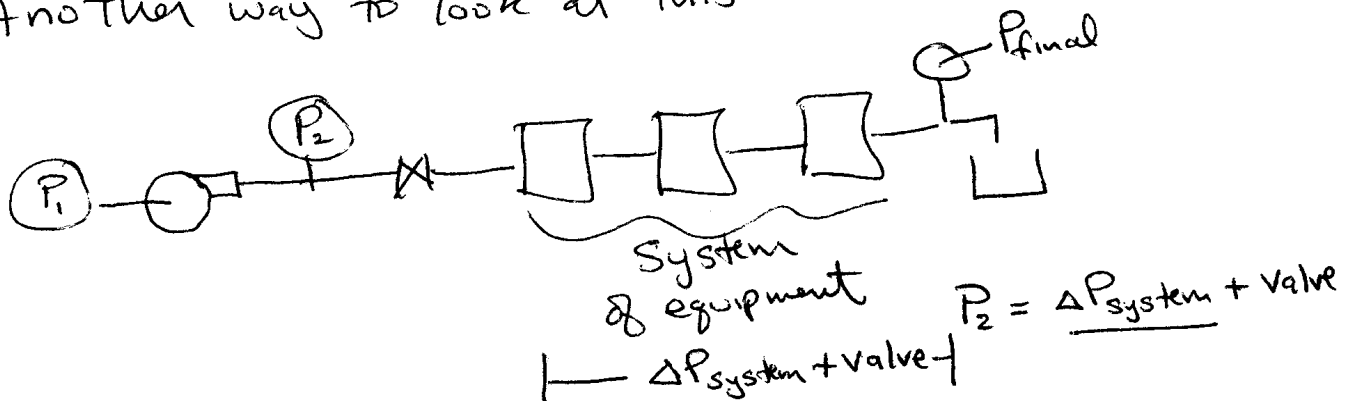 Another way to look at this
P final
P₂
P₁
System
of equipment
P₂ = ΔP system + Valve
ΔP system + Valve